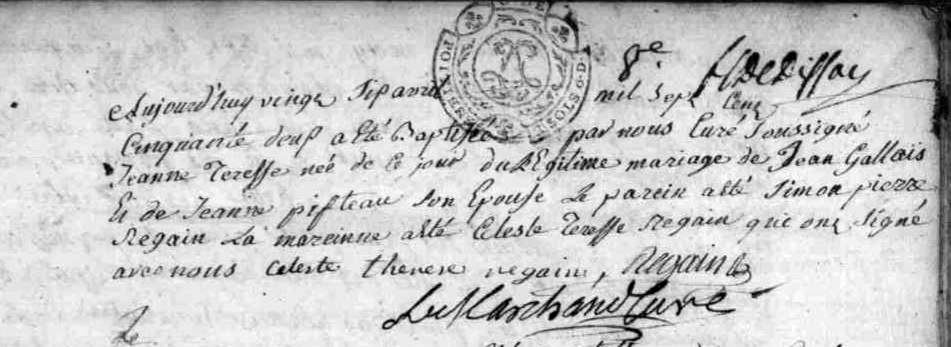 POITIERS SOLS 6 D
8e
Aujourd'huy vingt Sip avril mil Sept Cent
Cinquante deuf a été Baptisée par nous Curé Soussigné
Jeanne Teresse née de ce jour du Legitime mariage de Jean Gallais
Et de Jeanne pifteau Son Epouse Le parein a été Simon pierre
Regain La mareinne a été Celeste Teresse Regain que ont Signé
avec nous celeste therese regain, Regain
Le Marchand Curé